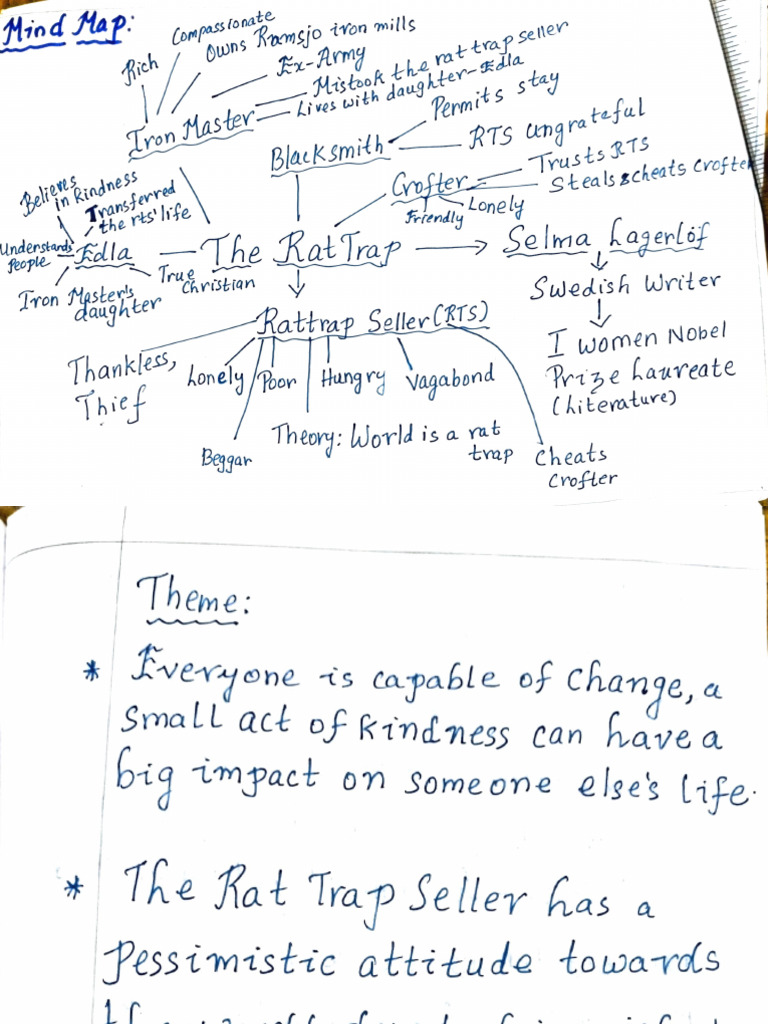 Mind Map:
Rich
Compassionate
Owns Ramsjo iron mills
Ex-Army
Mistook the rat trap seller
Lives with daughter-Edla
Iron Master
Blacksmith
Permits stay
RTS ungrateful
Crofter
Trusts RTS
Steals & cheats Crofter
Lonely
Friendly
Believes
in kindness
Transferred
the rts' life
Understands
People
Edla
True
Christian
Iron Master's
daughter
The Rat Trap
Selma Lagerlöf
Swedish Writer
I women Nobel
Prize Laureate
(Literature)
Rattrap Seller (RTS)
Thankless,
Thief
Lonely
Poor
Hungry
Vagabond
Beggar
Theory: World is a rat
trap
Cheats
Crofter
Theme:
* Everyone is capable of change, a
small act of kindness can have a
big impact on someone else's life.
* The Rat Trap Seller has a
pessimistic attitude towards